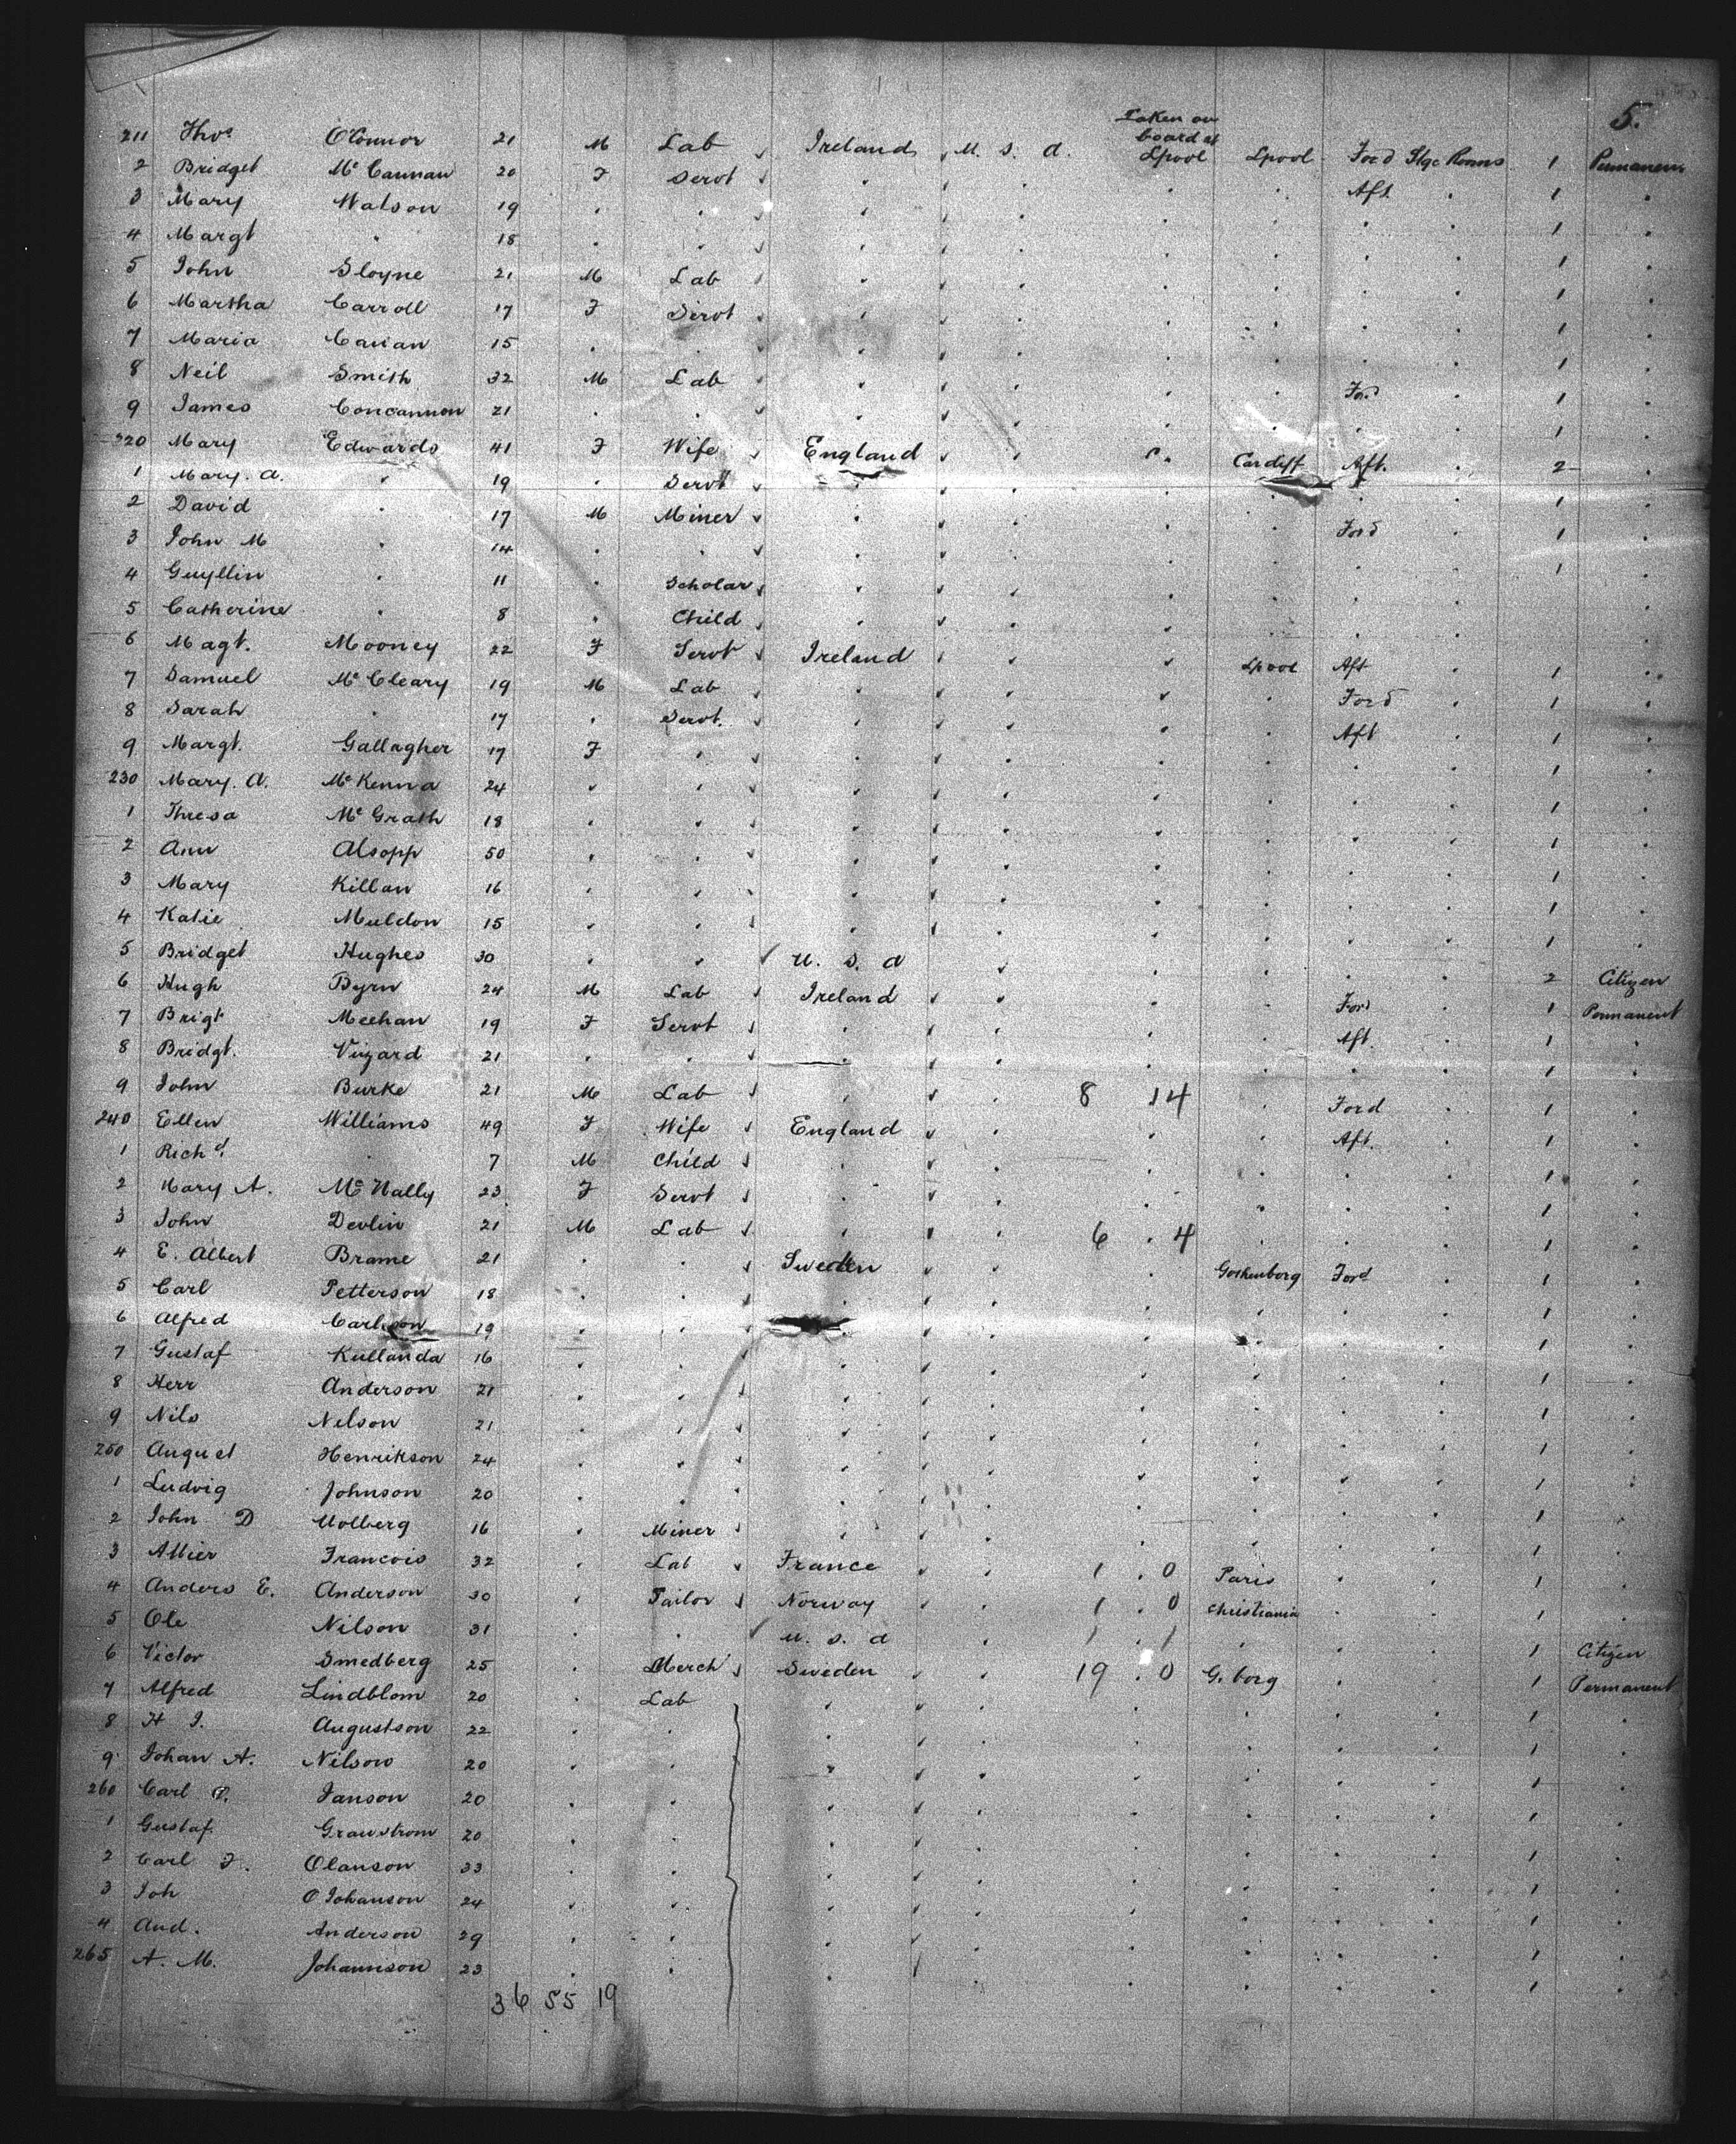 5.
Taken on
board at
211 Thos O'Connor 21 M Lab Ireland U. S. A. Lpool Lpool Ford Stge Rooms 1 Permanent
2 Bridget Mc Cannan 20 F Servt " " " " Aft " 1 "
3 Mary Watson 19 " " " " " " " " 1 "
4 Margt " 18 " " " " " " " " 1 "
5 John Sloyne 21 M Lab " " " " " " 1 "
6 Martha Carroll 17 F Servt " " " " " " 1 "
7 Maria Cavan 15 " " " " " " " " 1 "
8 Neil Smith 32 M Lab " " " " Ford " 1 "
9 James Concannon 21 " " " " " " " " 1 "
220 Mary Edwards 41 F Wife England " " Cardiff Aft. " 2 "
1 Mary. A. " 19 " Servt " " " " " " 1 "
2 David " 17 M Miner " " " " Ford " 1 "
3 John M " 14 " " " " " " " " 1 "
4 Guyllin " 11 " Scholar " " " " " "
5 Catherine " 8 " Child " " " " " "
6 Magt. Mooney 22 F Servt Ireland " " Lpool Aft " 1 "
7 Samuel Mc Cleary 19 M Lab " " " " Ford " 1 "
8 Sarah " 17 " Servt. " " " " Aft " 1 "
9 Margt. Gallagher 17 F " " " " " " " 1 "
230 Mary. A. Mc Kenna 24 " " " " " " " " 1 "
1 Thresa Mc Grath 18 " " " " " " " " 1 "
2 Ann Alsopp 50 " " " " " " " " 1 "
3 Mary Killan 16 " " " " " " " " 1 "
4 Katie Muldon 15 " " " " " " " " 1 "
5 Bridget Hughes 30 " " U. S. A " " " " " 2 Citizen
6 Hugh Byrn 24 M Lab Ireland " " " Ford " 1 Permanent
7 Brigt Meehan 19 F Servt " " " " Aft. " 1 "
8 Bridgt. Vizard 21 " " " " " " " " 1 "
9 John Burke 21 M Lab " " 8 14 " Ford " 1 "
240 Ellen Williams 49 F Wife England " " " Aft. " 1 "
1 Richd. " 7 M Child " " " " " " 1 "
2 Mary A. Mc Nally 23 F Servt " " " " " " 1 "
3 John Devlin 21 M Lab " " 6 . 4 " " " 1 "
4 E. Albert Brame 21 " " Sweden " " Gothenborg Ford " 1 "
5 Carl Petterson 18 " " " " " " " " 1 "
6 Alfred Carlson 19 " " " " " " " " 1 "
7 Gustaf Kullanda 16 " " " " " " " " 1 "
8 Herr Anderson 21 " " " " " " " " 1 "
9 Nils Nelson 21 " " " " " " " " 1 "
250 August Henrikson 24 " " " " " " " " 1 "
1 Ludvig Johnson 20 " " " " " " " " 1 "
2 John D Molberg 16 " Miner " " " " " " 1 "
3 Allier Francois 32 " Lab France " 1 . 0 Paris " " 1 "
4 Anders E. Anderson 30 " Tailor Norway " 1 . 0 Christiania " " 1 "
5 Ole Nilson 31 " " U. S. A " 1 . 1 " " " 1 Citizen
6 Victor Smedberg 25 " Merch Sweden " 19 . 0 G. borg " " 1 Permanent
7 Alfred Lindblom 20 " Lab " " " " " " 1 "
8 H J. Augustson 22 " " " " " " " " 1 "
9 Johan A. Nilson 20 " " " " " " " " 1 "
260 Carl O. Janson 20 " " " " " " " " 1 "
1 Gustaf Grawstrom 20 " " " " " " " " 1 "
2 Carl F. Olanson 33 " " " " " " " " 1 "
3 Joh O Johanson 24 " " " " " " " " 1 "
4 And. Anderson 29 " " " " " " " " 1 "
265 A. M. Johannison 23 " " " " " " " " 1 "
36 55 19